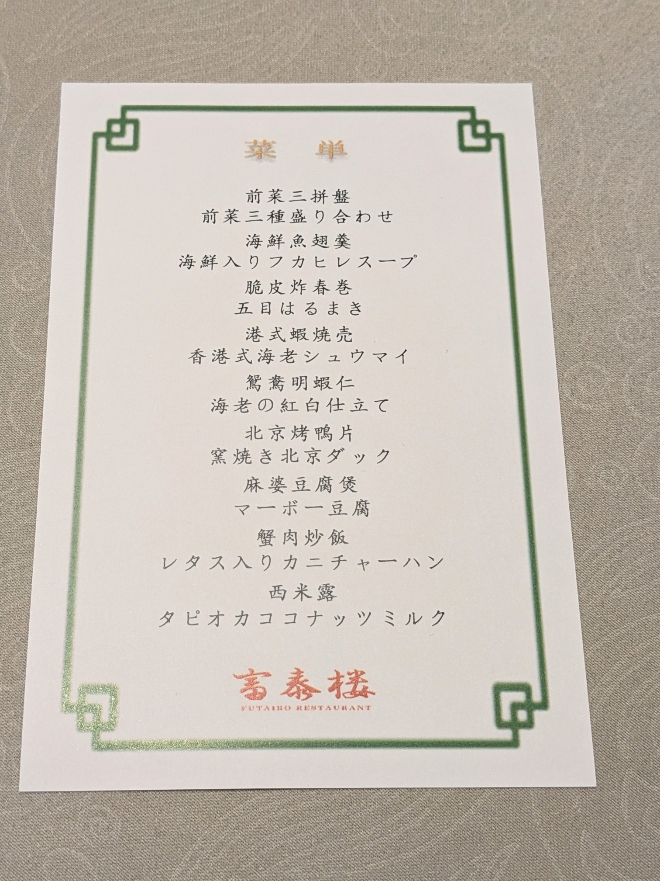 菜単
前菜三拼盤
前菜三種盛り合わせ
海鮮魚翅羹
海鮮入りフカヒレスープ
脆皮炸春巻
五目はるまき
港式蝦焼売
香港式海老シュウマイ
鴛鴦明蝦仁
海老の紅白仕立て
北京烤鴨片
窯焼き北京ダック
麻婆豆腐煲
マーボー豆腐
蟹肉炒飯
レタス入りカニチャーハン
西米露
タピオカココナッツミルク
富泰楼
FUTAIRO RESTAURANT